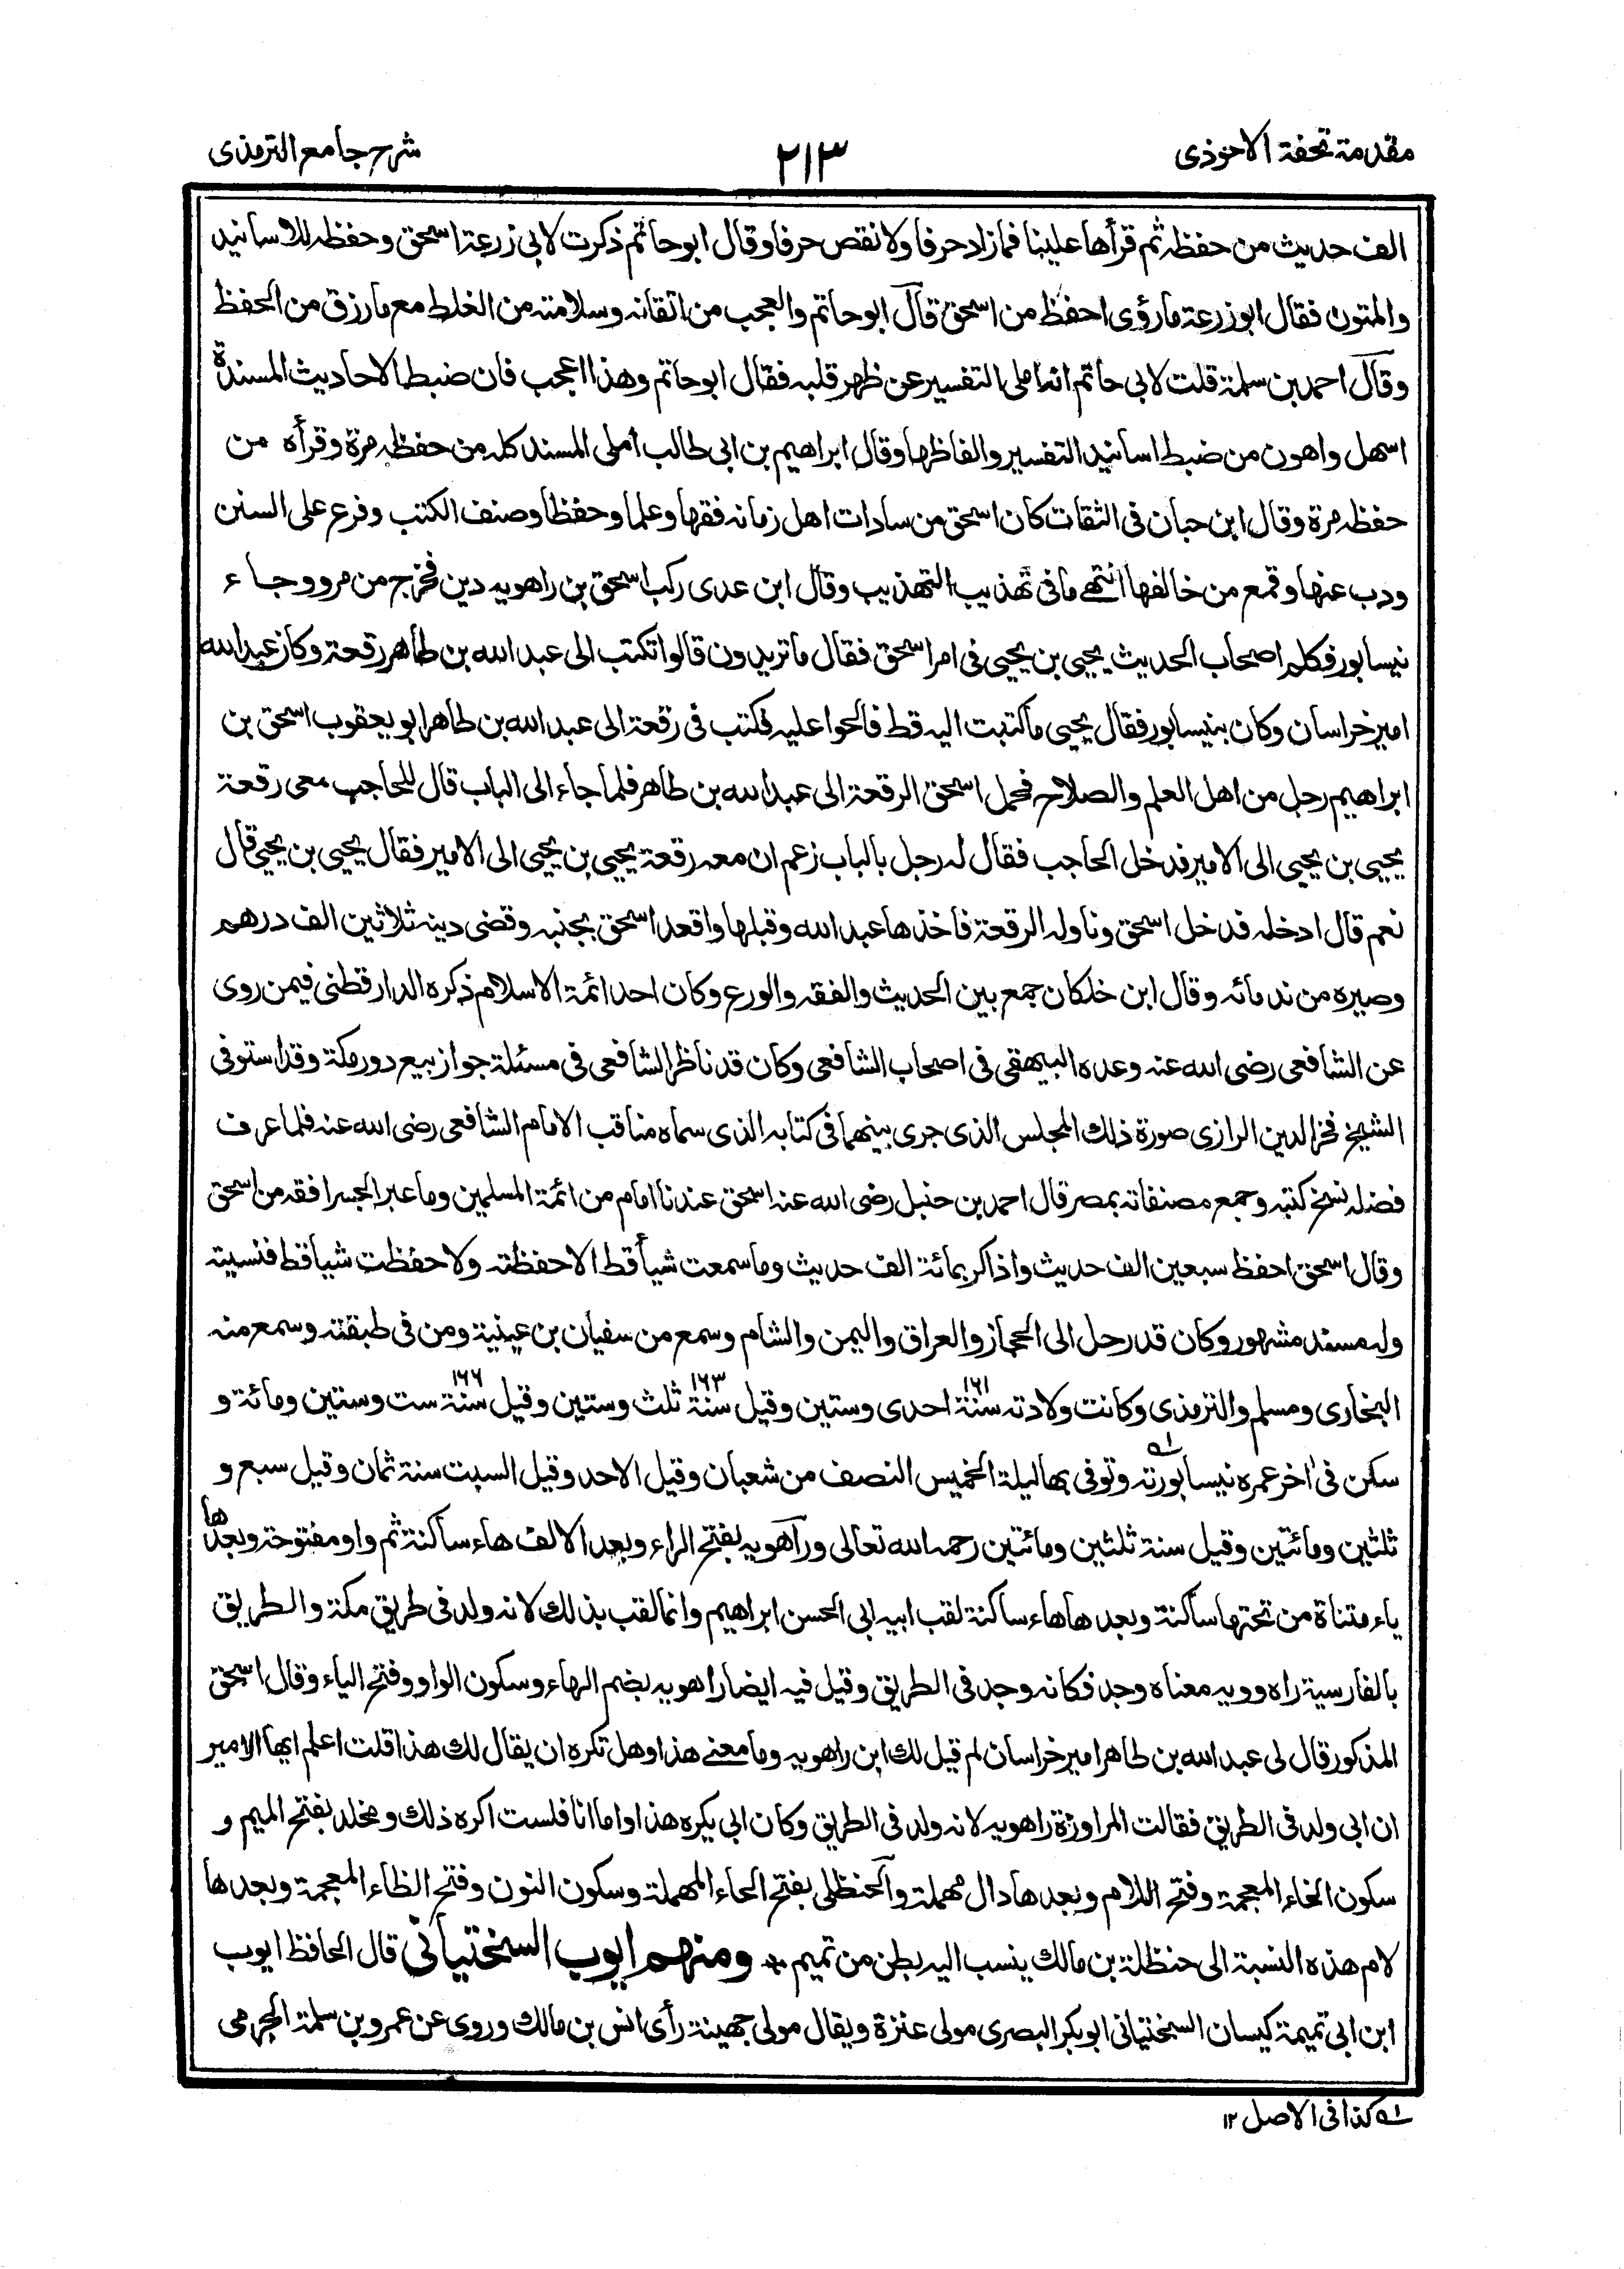 مقدمة تحفة الاحوذى
٢١٣
شرح جامع الترمذى
الف حديث من حفظه ثم قرأها علينا فمازاد حرفا ولا نقص حرفا وقال ابو حاتم ذكرت لابى زرعة اسحق وحفظه للاسانيد
والمتون فقال ابو زرعة مارؤى احفظ من اسحق قال ابو حاتم والعجب من اتقانه وسلامته من الغلط مع مارزق من الحفظ
وقال احمد بن سلمة قلت لابى حاتم انه املى التفسير عن ظهر قلبه فقال ابو حاتم وهذا اعجب فان ضبط الاحاديث المسندة
اسهل واهون من ضبط اسانيد التفسير والفاظها وقال ابراهيم بن ابى طالب املى المسند كله من حفظه مرة وقرأه من
حفظه مرة وقال ابن حبان فى الثقات كان اسحق من سادات اهل زمانه فقها وعلما وحفظا وصنف الكتب وفرع على السنن
وذب عنها وقمع من خالفها انتهى مافى تهذيب التهذيب وقال ابن عدى ركب اسحق بن راهويه دين فخرج من مرو وجاء
نيسابور فكلم اصحاب الحديث يحيى بن يحيى فى امر اسحق فقال ماتريدون قالوا تكتب الى عبد الله بن طاهر رقعة وكان عبد الله
امير خراسان وكان بنيسابور فقال يحيى ماكتبت اليه قط فالحوا عليه فكتب فى رقعة الى عبد الله بن طاهر ابو يعقوب اسحق بن
ابراهيم رجل من اهل العلم والصلاح فحمل اسحق الرقعة الى عبد الله بن طاهر فلما جاء الى الباب قال للحاجب معى رقعة
يحيى بن يحيى الى الامير فدخل الحاجب فقال له رجل بالباب زعم ان معه رقعة يحيى بن يحيى الى الامير فقال يحيى بن يحيى قال
نعم قال ادخله فدخل اسحق وناوله الرقعة فاخذها عبد الله وقبلها واقعد اسحق بجنبه وقضى دينه ثلاثين الف درهم
وصيره من ندمائه وقال ابن خلكان جمع بين الحديث والفقه والورع وكان احد ائمة الاسلام ذكره الدارقطنى فيمن روى
عن الشافعى رضى الله عنه وعده البيهقى فى اصحاب الشافعى وكان قد ناظر الشافعى فى مسئلة جواز بيع دور مكة وقد استوفى
الشيخ فخر الدين الرازى صورة ذلك المجلس الذى جرى بينهما فى كتابه الذى سماه مناقب الامام الشافعى رضى الله عنه فلما عرف
فضله نسخ كتبه وجمع مصنفاته بمصر قال احمد بن حنبل رضى الله عنه اسحق عندنا امام من ائمة المسلمين وما عبر الجسر افقه من اسحق
وقال اسحق احفظ سبعين الف حديث واذاكر بمائة الف حديث وما سمعت شيأ قط الا حفظته ولا حفظت شيأ قط فنسيته
وله مسند مشهور وكان قد رحل الى الحجاز والعراق واليمن والشام وسمع من سفيان بن عيينة ومن فى طبقته وسمع منه
البخارى ومسلم والترمذى وكانت ولادته سنة ١٦١ احدى وستين وقيل سنة ١٦٣ ثلث وستين وقيل سنة ١٦٦ ست وستين ومائة و
سكن فى اخر عمره نيسابورته ١ه وتوفى بها ليلة الخميس النصف من شعبان وقيل الاحد وقيل السبت سنة ثمان وقيل سبع و
ثلثين ومائتين وقيل سنة ثلثين ومائتين رحمه الله تعالى وراهويه بفتح الراء وبعد الالف هاء ساكنة ثم واو مفتوحة وبعدها
ياء مثناة من تحتها ساكنة وبعدها هاء ساكنة لقب ابيه ابى الحسن ابراهيم وانما لقب بذلك لانه ولد فى طريق مكة والطريق
بالفارسية راه وويه معناه وجد فكانه وجد فى الطريق وقيل فيه ايضا راهويه بضم الهاء وسكون الواو وفتح الياء وقال اسحق
المذكور قال لى عبد الله بن طاهر امير خراسان لم قيل لك ابن راهويه وما معنى هذا وهل تكره ان يقال لك هذا قلت اعلم ايها الامير
ان ابى ولد فى الطريق فقالت المراوزة راهويه لانه ولد فى الطريق وكان ابى يكره هذا واما انا فلست اكره ذلك ومخلد بفتح الميم و
سكون الخاء المعجمة وفتح اللام وبعدها دال مهملة والحنظلى بفتح الحاء المهملة وسكون النون وفتح الظاء المعجمة وبعدها
لام هذه النسبة الى حنظلة بن مالك ينسب اليه بطن من تميم * ومنهم ايوب السختيانى قال الحافظ ايوب
ابن ابى تميمة كيسان السختيانى ابو بكر البصرى مولى عنزة ويقال مولى جهينة رأى انس بن مالك وروى عن عمرو بن سلمة الجرمى
١ه كذا فى الاصل ١٢